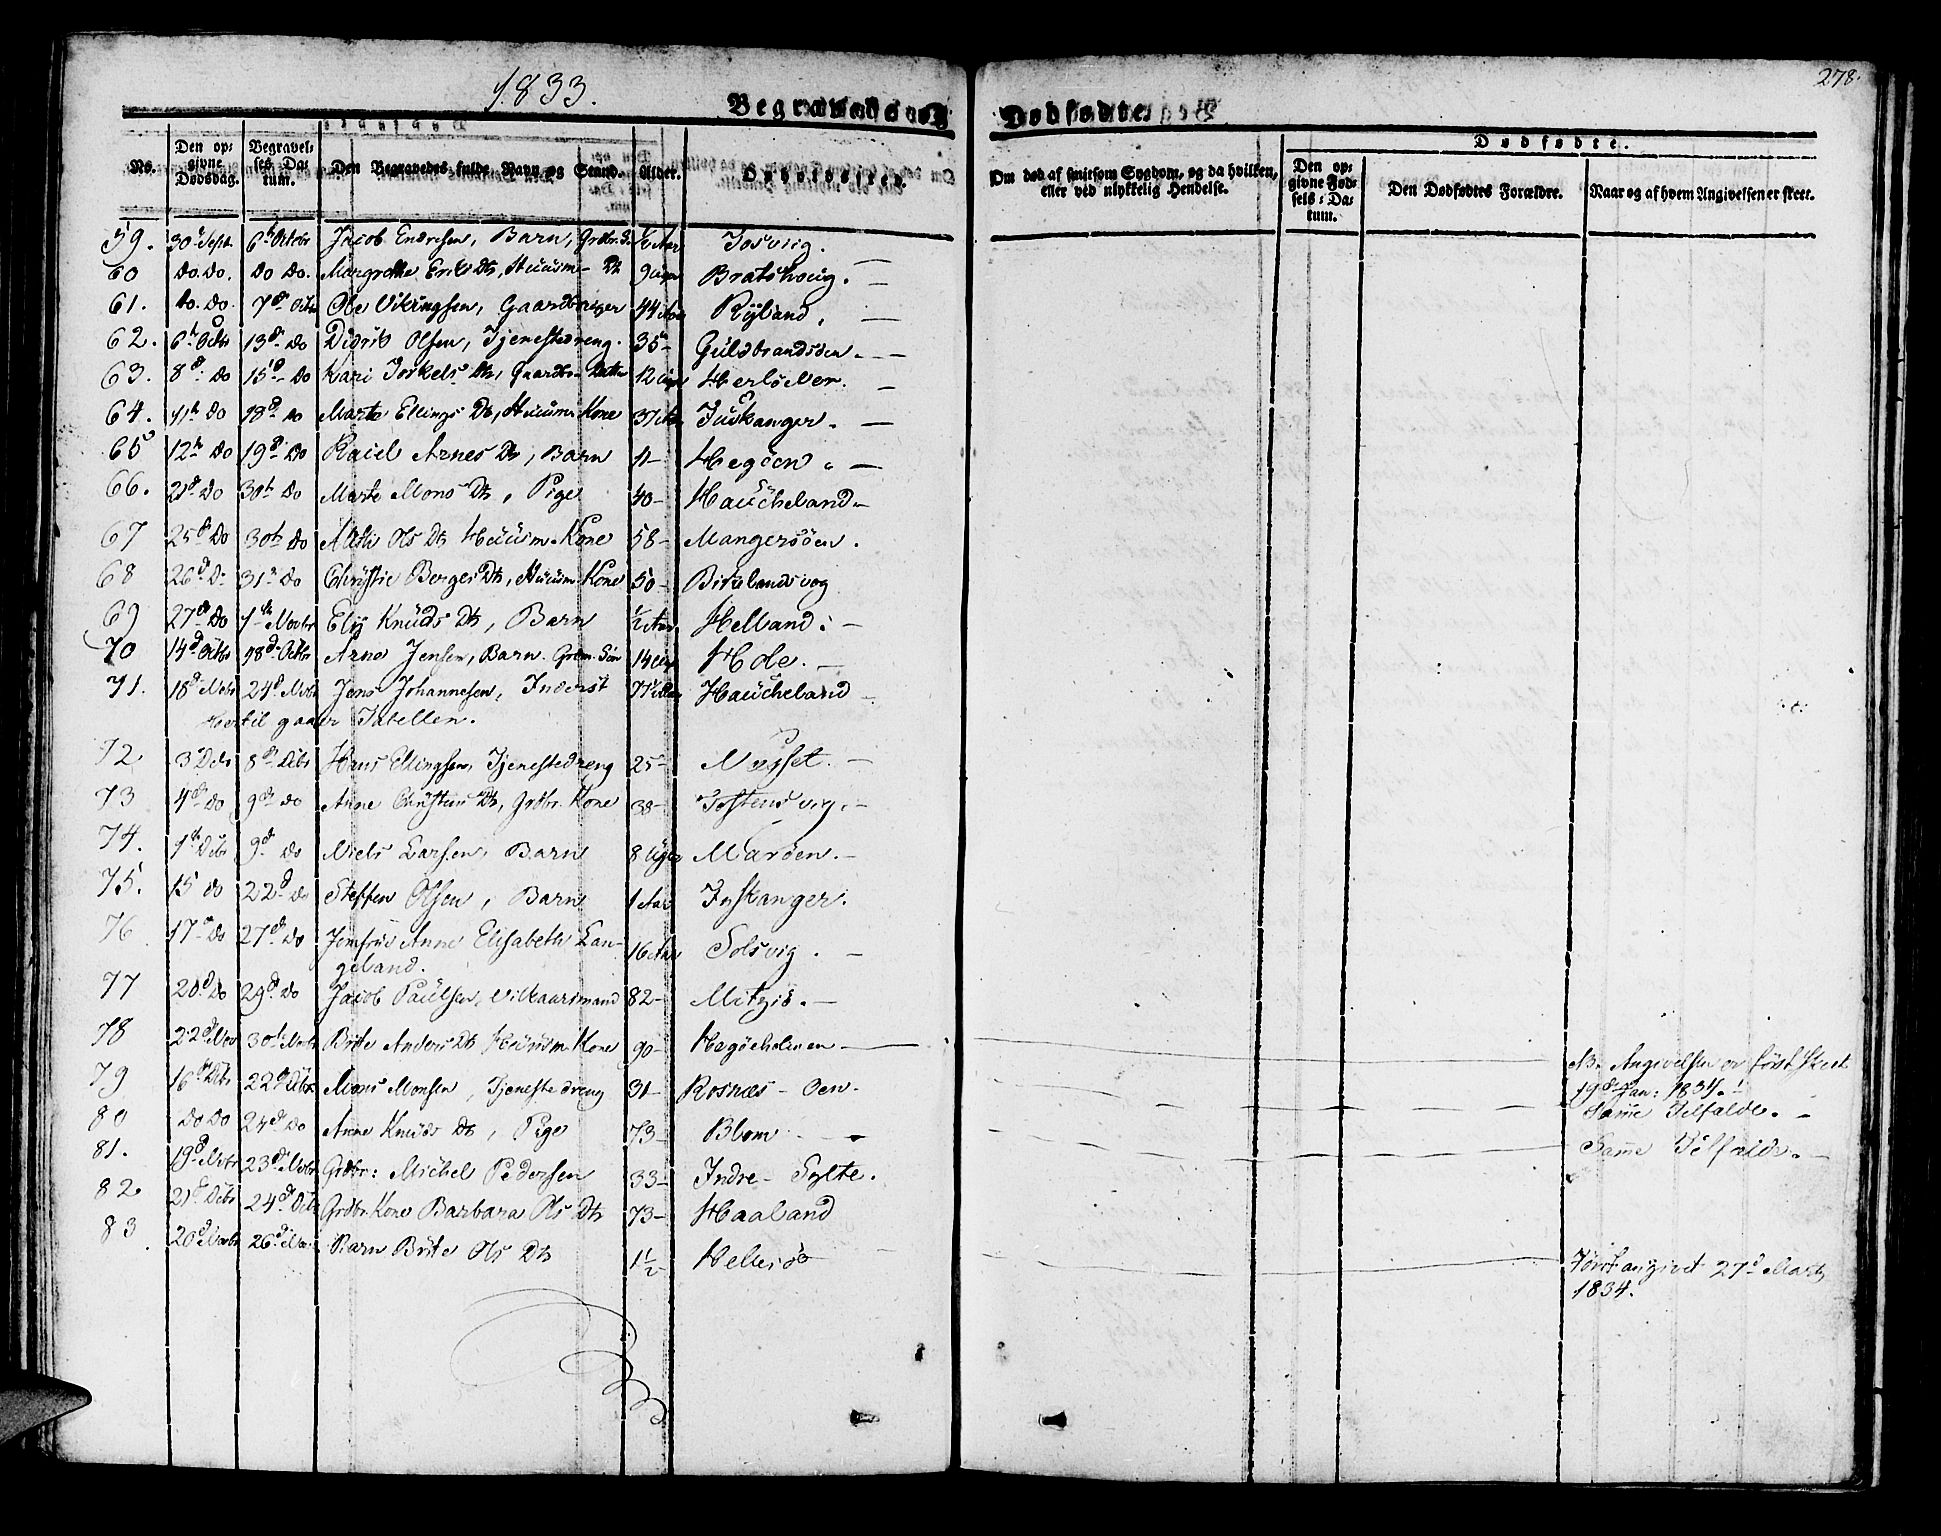 278.
1833.
Begravede og Dødfødte.
No.
Den opgivne Dødsdag.
Begravelses Datum.
Den Begravedes fulde Navn og Stand.
Alder.
Opholdssted.
Om død af smitsom Sygdom, og da hvilken, eller ved ulykkelig Hendelse.
Dødfødte.
Den opgivne Fødsels-Datum.
Den Dødfødtes Forældre.
Naar og af hvem Angivelsen er skeet.
59. 30 Sept. 6te Octobr Jacob Endresen, Barn, Grdbr. S. ½ Aar
60 do. do. do do. Margrethe Eriks Dtr, Huusm. Dtr 9 Bratshoug.
61. do. do. 7de Octbr Ole Vikingsen, Gaardbruger 44 Aar Ryland.
62. 6te Octbr 13de do Didrik Olsen, Tjenestedreng. 35 - Guldbrandsøen.
63. 8de do 15de do Kari Torkels Dtr, Gaardbr. Datter 12 Herløever.
64. 11te do 18de do Marte Ellings Dtr, Huusm. Kone 37 Aar Tuskanger.
65 12te do 19de do Raiel Arnes Dtr, Barn 11 - Hegøen.
66. 21de do 30te do Marte Mons Dtr, Pige 40 - Haucheland
67 25de do 30te do Ols Dtr Huusm. Kone 58 - Mangersøen.
68 26de do 31te do Christie Berges Dtr, Huusm. Kone 50 - Birkelandsvog
69 27de do 1te Novbr Elij Knuds Dtr, Barn ½ Aar Helland.
70 14de Octbr 18de Octbr Arne Jensen, Barn. Grdm. Søn 14 Hole.
71. 18de Novbr 24de Novbr Jens Johannesen, Inderst 71 Aar Haucheland
Hertil gaaer Tabellen.
72 3 Decbr 8de Decbr Hans Ellingsen, Tjenestedreng 25 -
73 4de do 9de do Anne Christens Dtr, Grdbr. Kone 38 - Tostensvig.
74. 1te Decbr 9de do Niels Larsen, Barn 8 Uger Marøen.
75. 15 do 22de do Steffen Olsen, Barn 1 Aar Inskanger.
76 17de do 27de do Jomfrue Anne Elisabeth Lan-
geland. 16 Aar Solsvig.
77 20de do 29de do Jacob Paulsen, Vilkaarsmand 82 -
78 22de Nov 30te Novbr Brite Anders Dtr Huusm. Kone 90 - Hegøeholmen
79 16de Decbr 22de Decbr Mons Monsen, Tjenestedreng 31 - Rosnæs-Oen. NB. Angivelsen er først skeet
19de Jan: 1834.
80 do do 24de do Anne Knuds Dtr, Pige 73 - Blom Samme Tilfælde.
81. 19de Novbr 23de Novbr Grdbr: Michel Pedersen 33 - Indre-Sylte. Samme Tilfælde.
82. 21de Decbr 24de Decbr Grdbr. Kone Barbara Ols Dtr 73 - Haaland
83 20de Novbr 26de Nov. Barn Brite Ols Dtr 1½ Hellesøe Først angivet 27de Marts
1834.